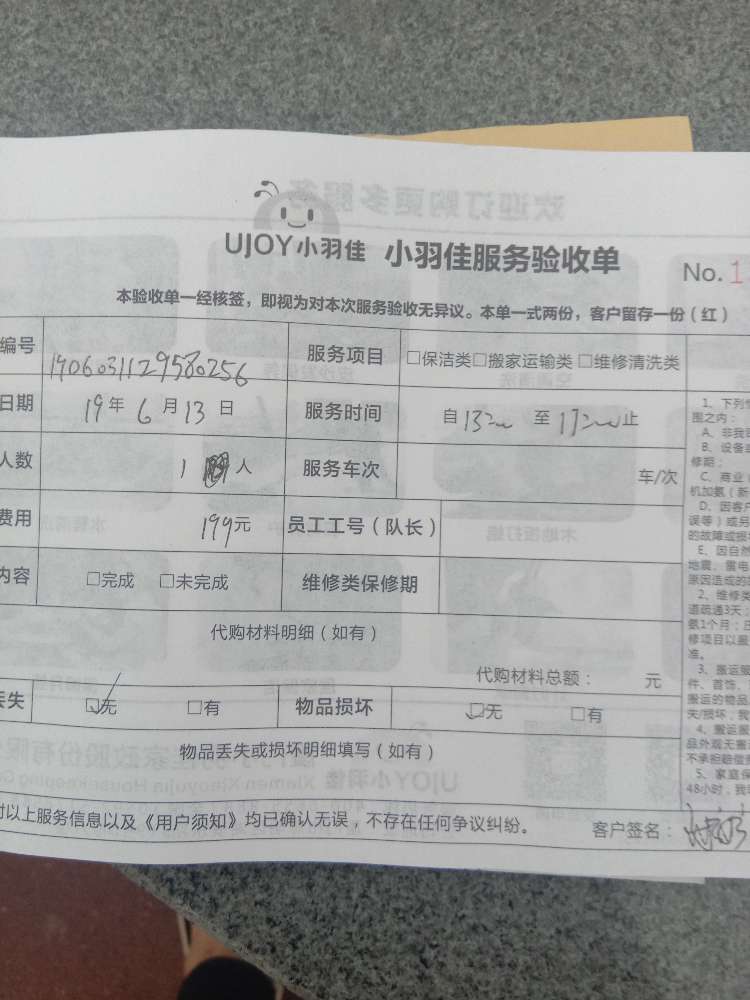 UJOY小羽佳 小羽佳服务验收单 No.1
本验收单一经核签，即视为对本次服务验收无异议。本单一式两份，客户留存一份（红）
编号 1906031129580256 服务项目 □保洁类□搬家运输类□维修清洗类
日期 19年6月13日 服务时间 自13:00 至17:00止
人数 1 人 服务车次 车/次
费用 199元 员工工号（队长）
内容 □完成 □未完成 维修类保修期
代购材料明细（如有）
代购材料总额： 元
丢失 ☑无 □有 物品损坏 ☑无 □有
物品丢失或损坏明细填写（如有）
对以上服务信息以及《用户须知》均已确认无误，不存在任何争议纠纷。 客户签名：
1、下列
围之内：
A、非我
B、设备
修期；
C、商业
机加氨（新
D、因客户
误等）或另
的故障或损
E、因自然
地震、雷电
原因造成的
2、维修类
道疏通3天，
氨1个月；
修项目以
准。
3、搬运
件、首饰、
搬运的物品
失/损坏，
4、搬运
品外观无
不承担赔偿
5、家庭保
48小时，我